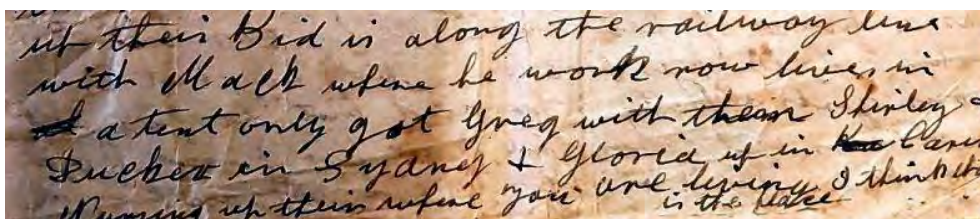 up their Bid is along the railway line
with Mack where he work now lives in
a tent only got Greg with them Shirley
in Sydney & Gloria up in
Nursing up their where you are living I think
is the place